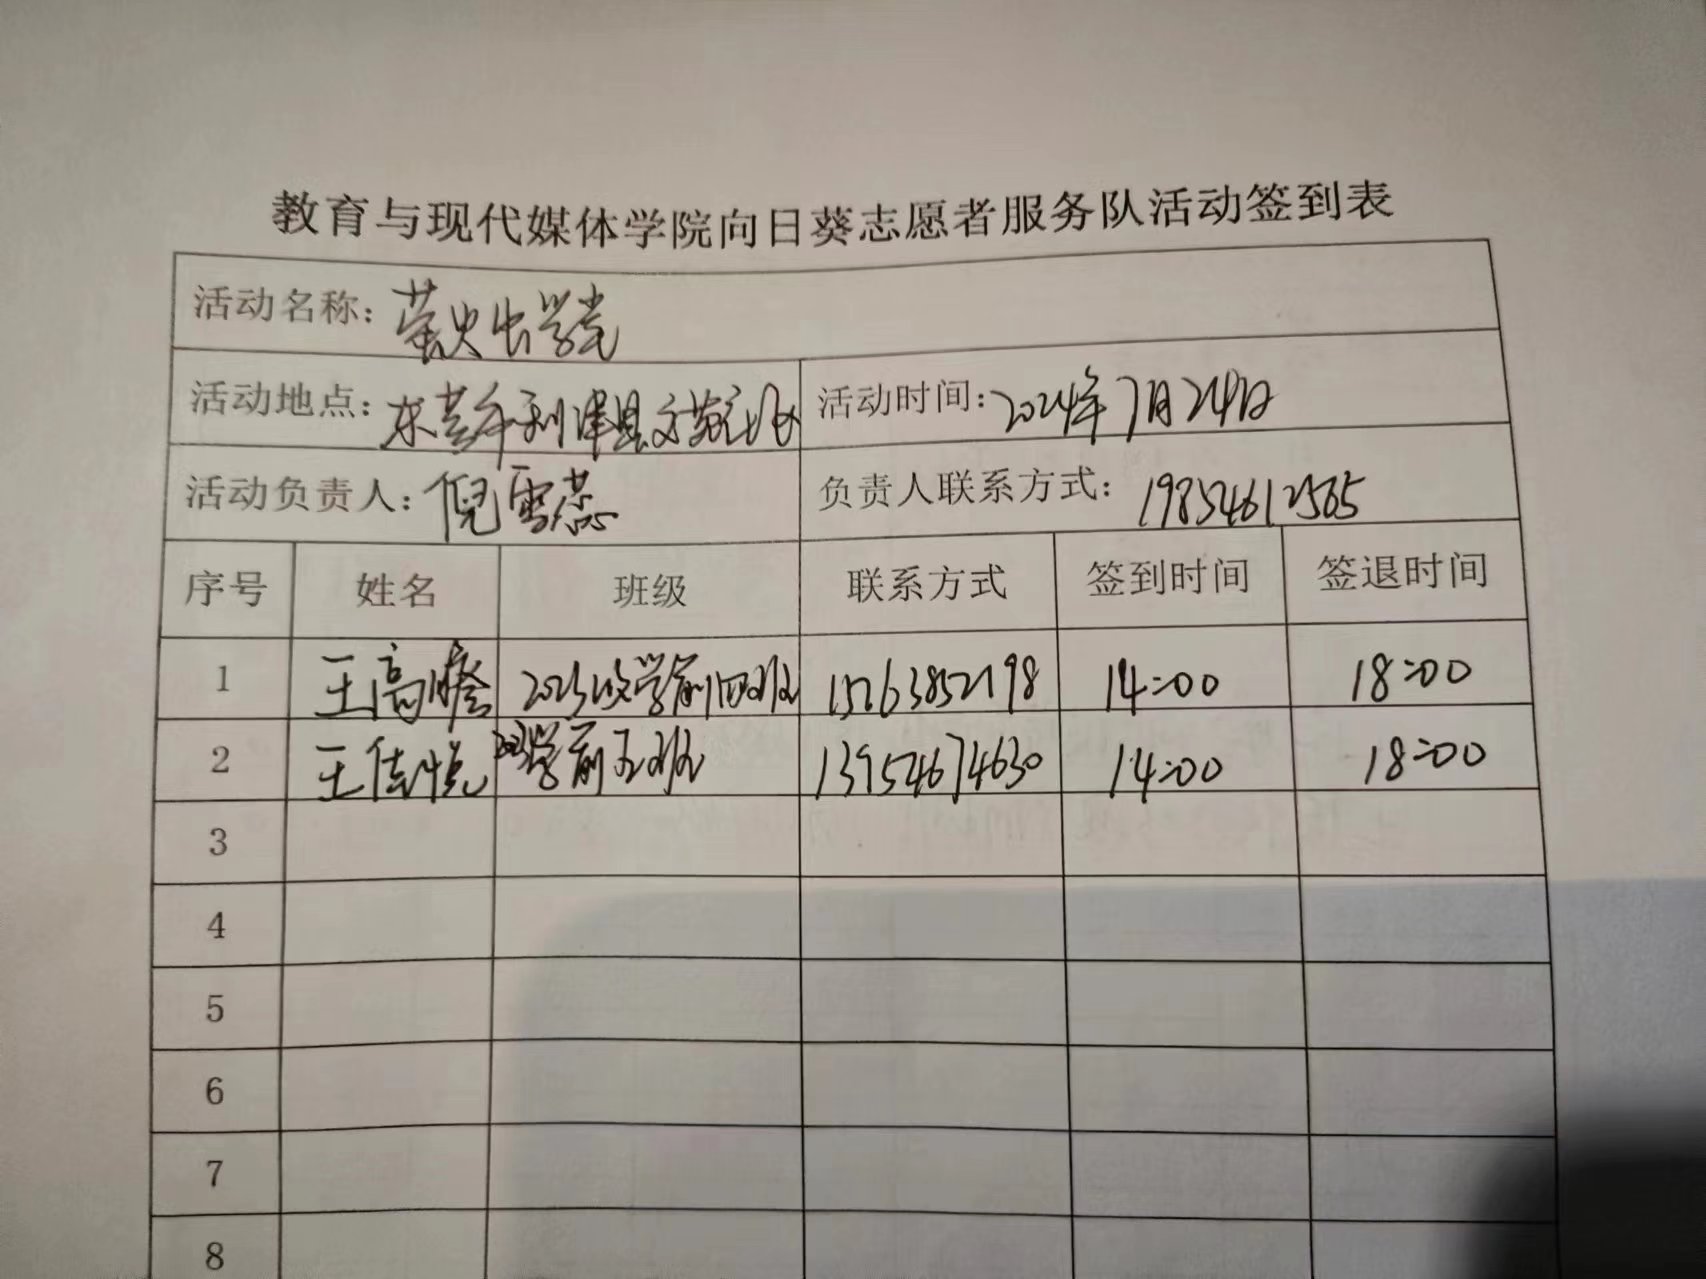 教育与现代媒体学院向日葵志愿者服务队活动签到表
活动名称：萤火虫学堂
活动地点：东营市利津县文苑社区 活动时间：2024年7月24日
活动负责人：倪雪蕊 负责人联系方式：19854612565
序号 姓名 班级 联系方式 签到时间 签退时间
1 王高 2023级学前四班 15263852198 14:00 18:00
2 王佳悦 2023学前五班 13954674630 14:00 18:00
3
4
5
6
7
8